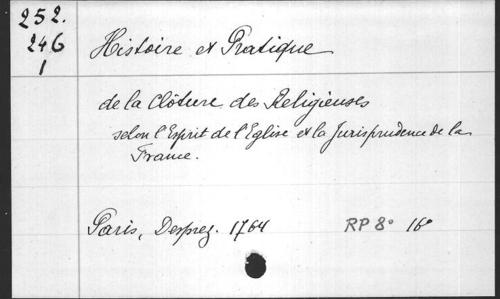 252.
246
1
Histoire et Pratique
de la Clôture des Religieuses
selon l'Esprit de l'Eglise et la Jurisprudence de la
France.
Paris, Desprez. 1764 RP 8° 16°